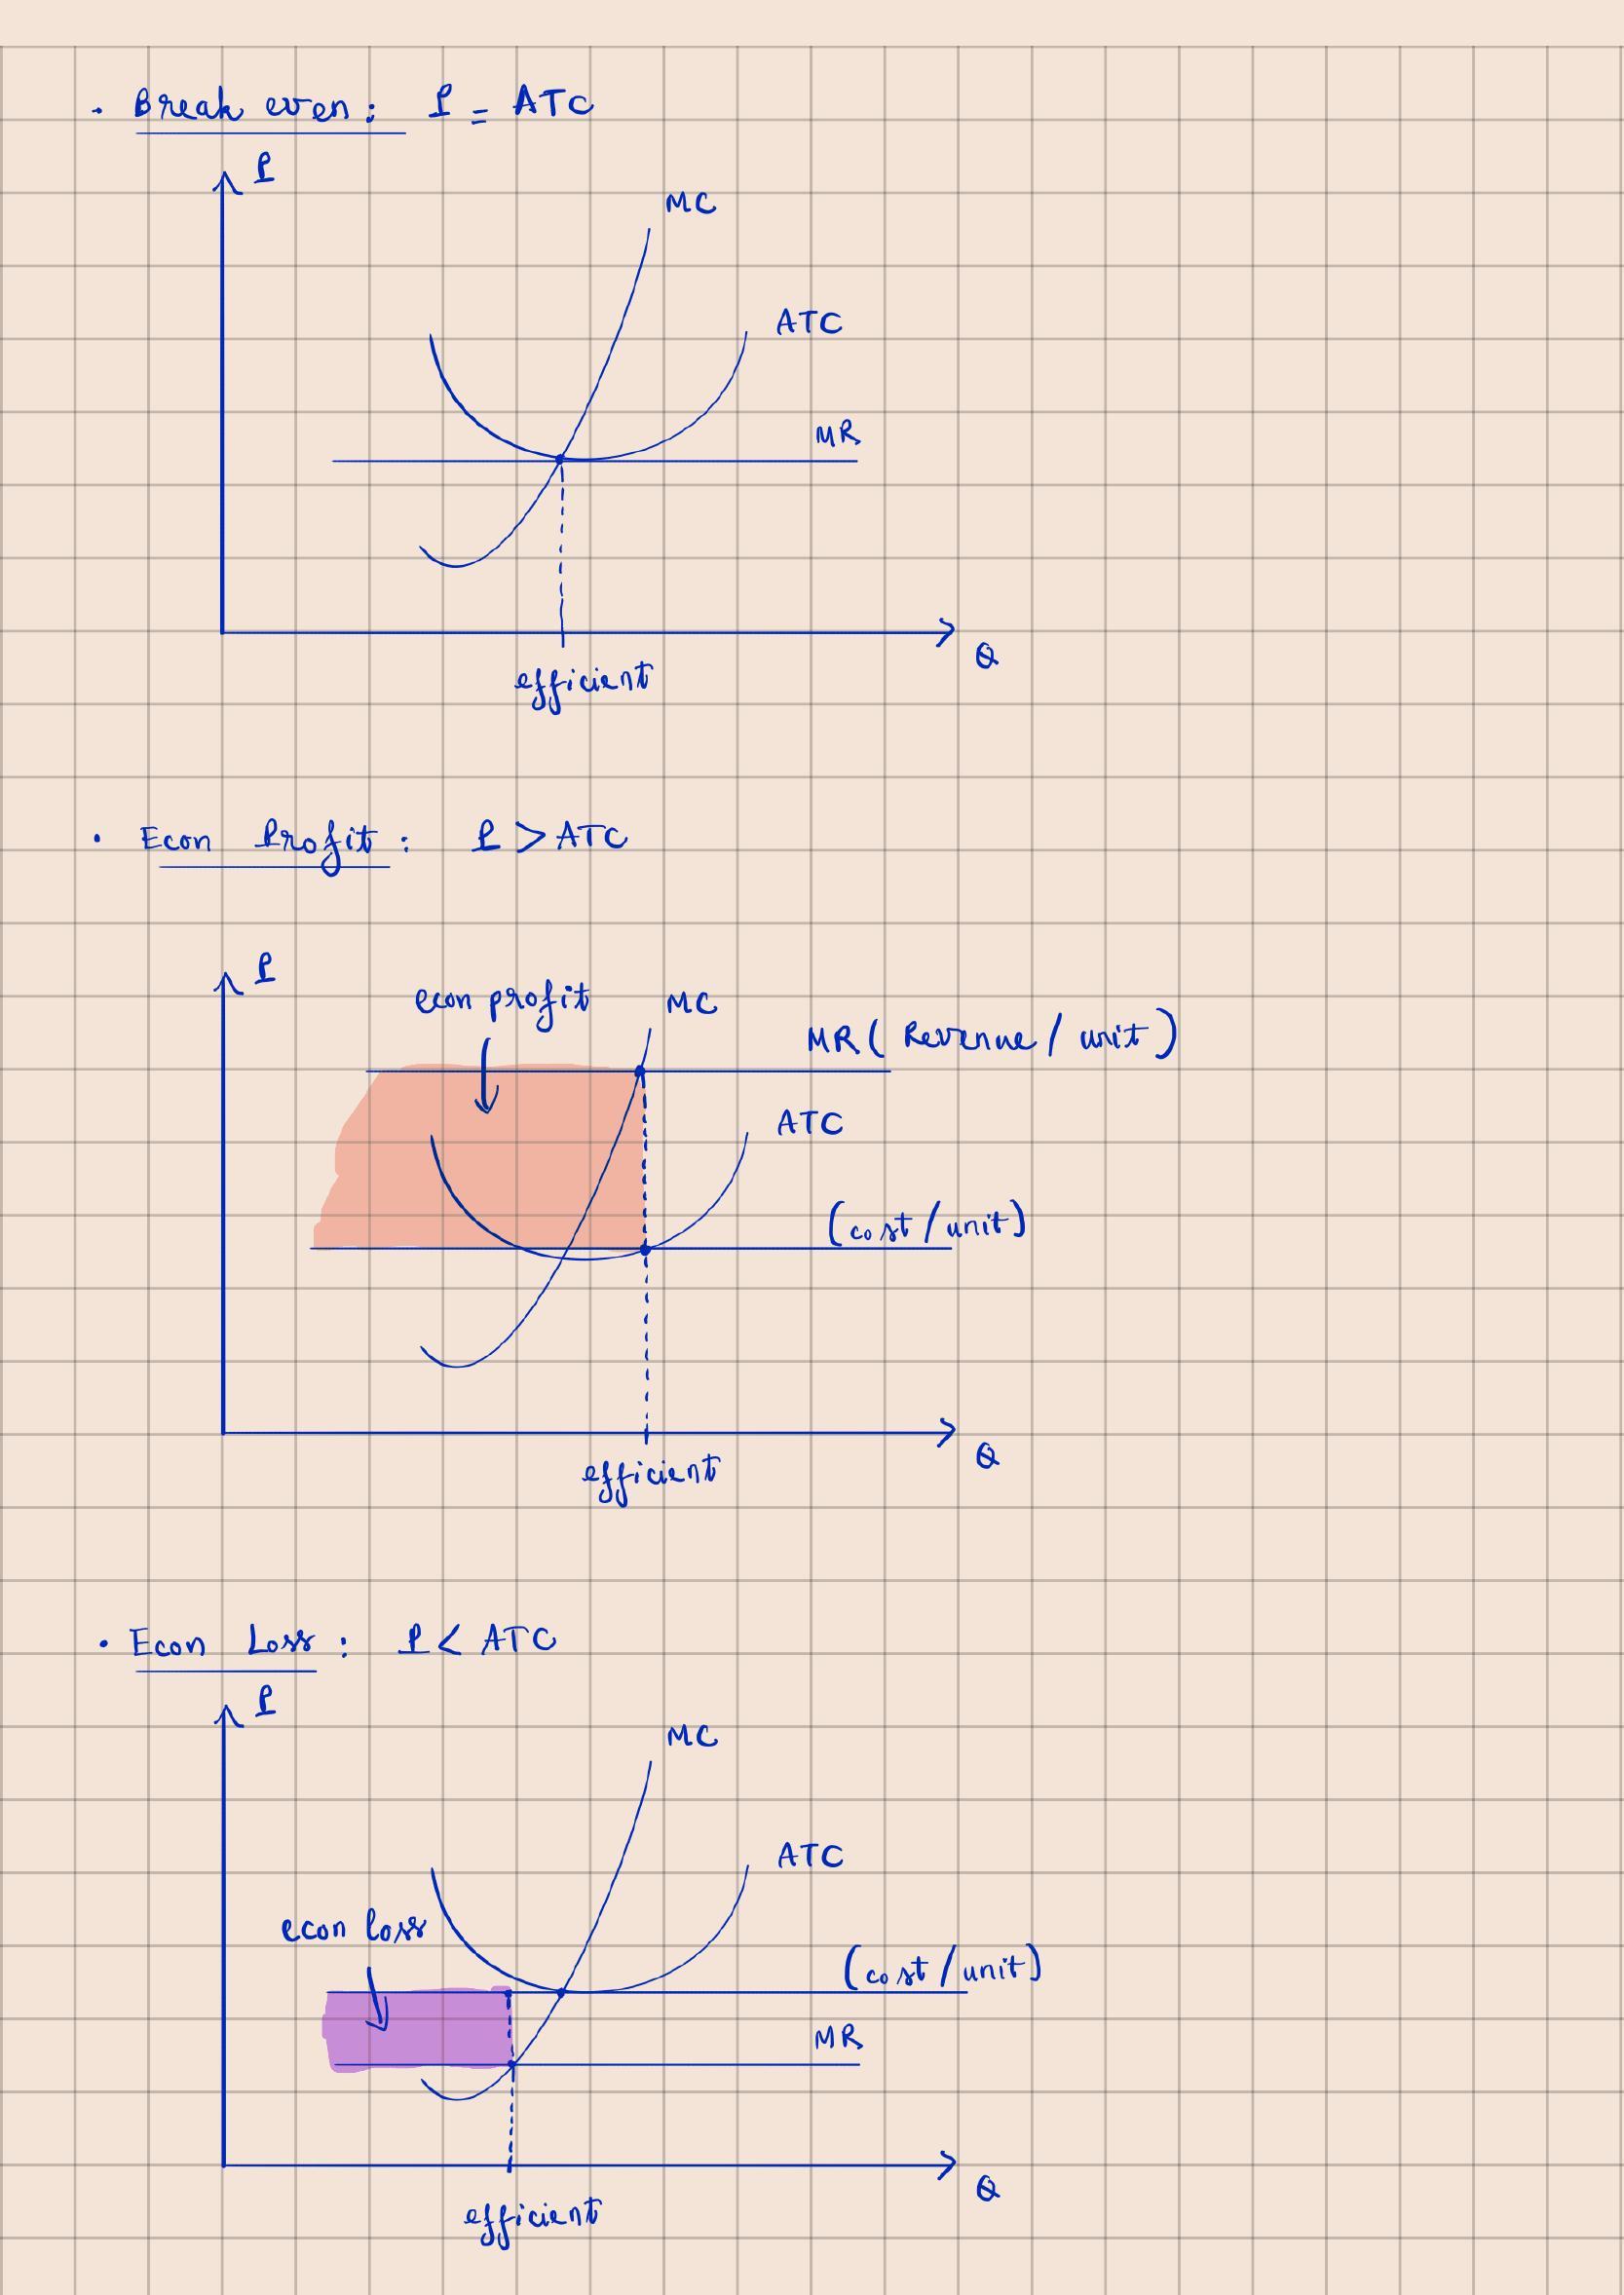 · Break even : P = ATC
P
MC
ATC
MR
Q
efficient
· Econ Profit : P > ATC
P
econ profit
MC
MR ( Revenue / unit )
ATC
(cost / unit)
Q
efficient
· Econ Loss : P < ATC
P
MC
ATC
econ loss
(cost / unit)
MR
Q
efficient